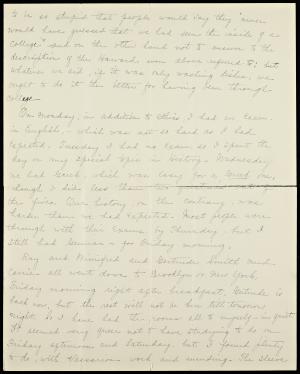 to be so stupid that people would say they "never
would have guessed that we had seen the inside of a
college" and on the other hand not to answer to the
description of the Harvard man above referred to; but
whatever we did, if it was only washing dishes, we
ought to do it the better for having been through
college.
On Monday, in addition to Ethics, I had an exam
in English - which was not so hard as I had
expected. Tuesday I had no exam so I spent the
day on my special topic in History. Wednesday
we had Greek, which was easy for a Greek one,
though I did less than two questions out of
the five. Our history, on the contrary, was
harder than we had expected. Most people were
through with their exams by Thursday, but I
still had German - for Friday morning.
Ray and Winifred and Gertrude Smith and
Carrie all went down to Brooklyn or New York,
Friday morning right after breakfast. Gertrude is
back now, but the rest will not be here till tomorrow
night. So I have had the rooms all to myself - in quiet.
It seemed very queer not to have studying to do on
Friday afternoon and Saturday, but I found plenty
to do, with Vassarion work and mending. The sleeve